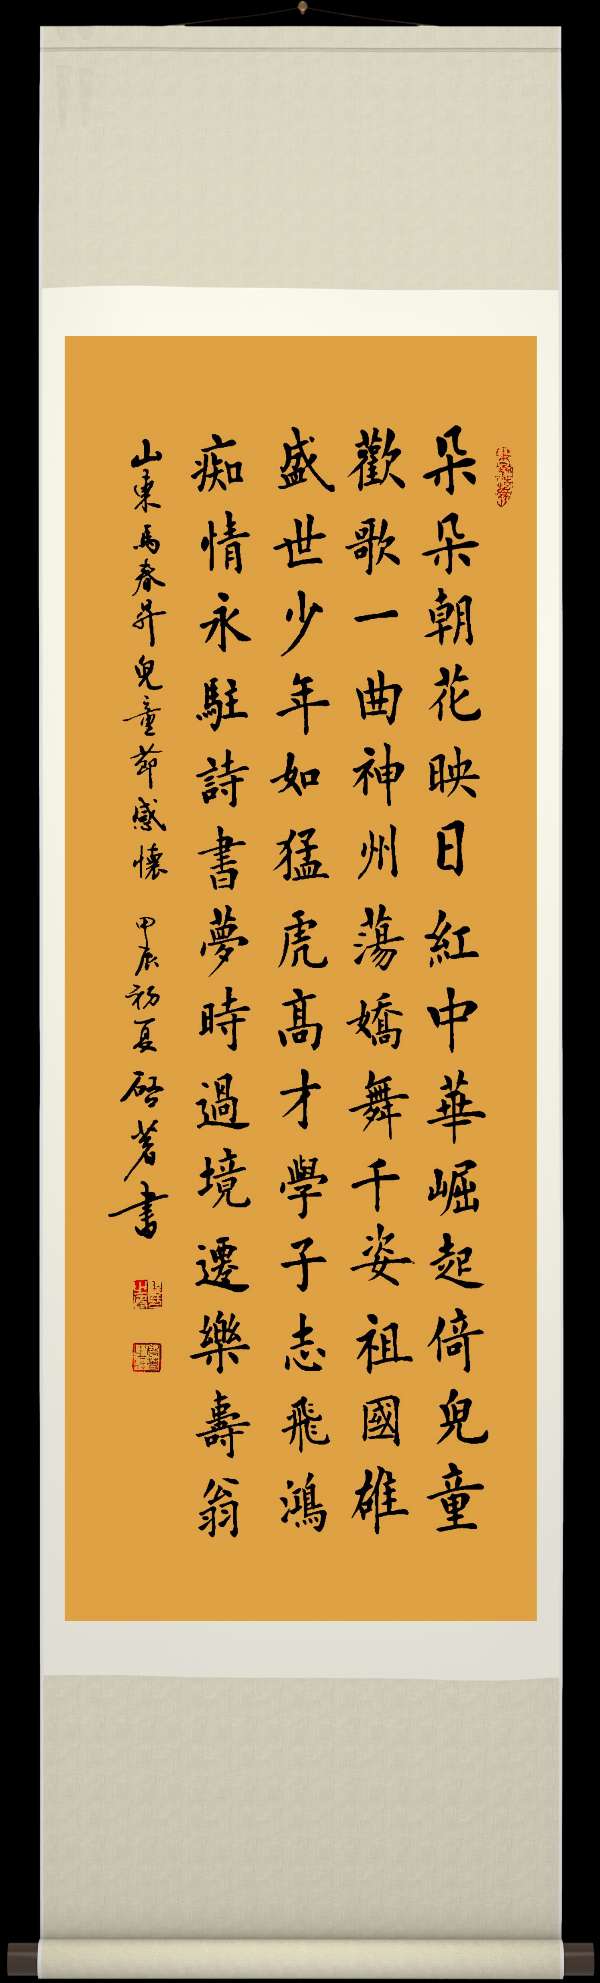 朵朵朝花映日紅中華崛起倚兒童
歡歌一曲神州蕩嬌舞千姿祖國雄
盛世少年如猛虎高才學子志飛鴻
痴情永駐詩書夢時過境遷樂壽翁
山東馬春昇兒童節感懷 甲辰初夏 啓著書